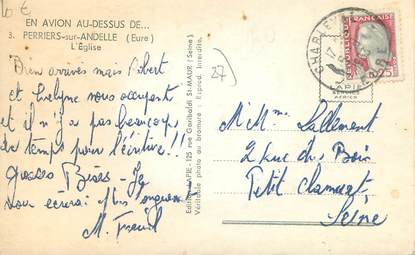 10 €
EN AVION AU-DESSUS DE...
3. PERRIERS-sur-ANDELLE (Eure)
L'Église
Bien arrivés mais Gilbert
et Evelyne nous occupent
et il n'y a pas beaucoup
de temps pour t'écrire !!
Grosses Bises
vous écrirai plus longuement
M.
27
Editions LAPIE - 125 rue Garibaldi St-MAUR (Seine)
Véritable photo au bromure - Reprod. Interdite.
LAPIE
SERVICE
AERIEN
RÉPUBLIQUE FRANÇAISE
0,25
M Mme Lallement
2 Rue du Bois
Petit Clamart
Seine